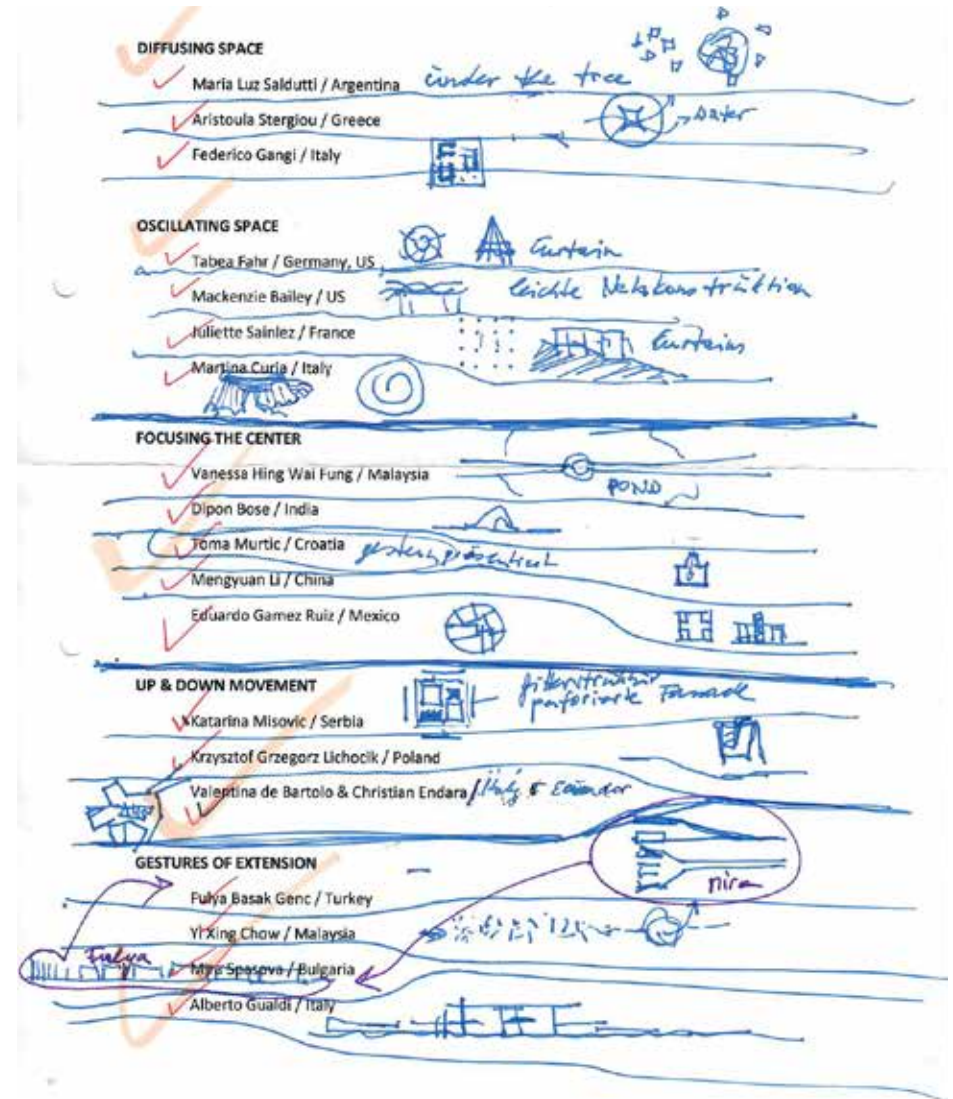 DIFFUSING SPACE
Maria Luz Saldutti / Argentina under the tree
Aristoula Stergiou / Greece
Federico Gangi / Italy
OSCILLATING SPACE
Tabea Fahr / Germany, US Curtain
Mackenzie Bailey / US leichte Netzkonstruktion
Juliette Sainlez / France Curtains
Martina Curia / Italy
FOCUSING THE CENTER
Vanessa Hing Wai Fung / Malaysia
POND
Dipon Bose / India
Toma Murtic / Croatia gestern präsentiert
Mengyuan Li / China
Eduardo Gamez Ruiz / Mexico
UP & DOWN MOVEMENT
perforierte Fassade
Katarina Misovic / Serbia
Krzysztof Grzegorz Lichocik / Poland
Valentina de Bartolo & Christian Endara / Italy & Ecuador
GESTURES OF EXTENSION
mira
Fulya Basak Genc / Turkey
Yi Xing Chow / Malaysia
Fulya
Mira Spasova / Bulgaria
Alberto Gualdi / Italy